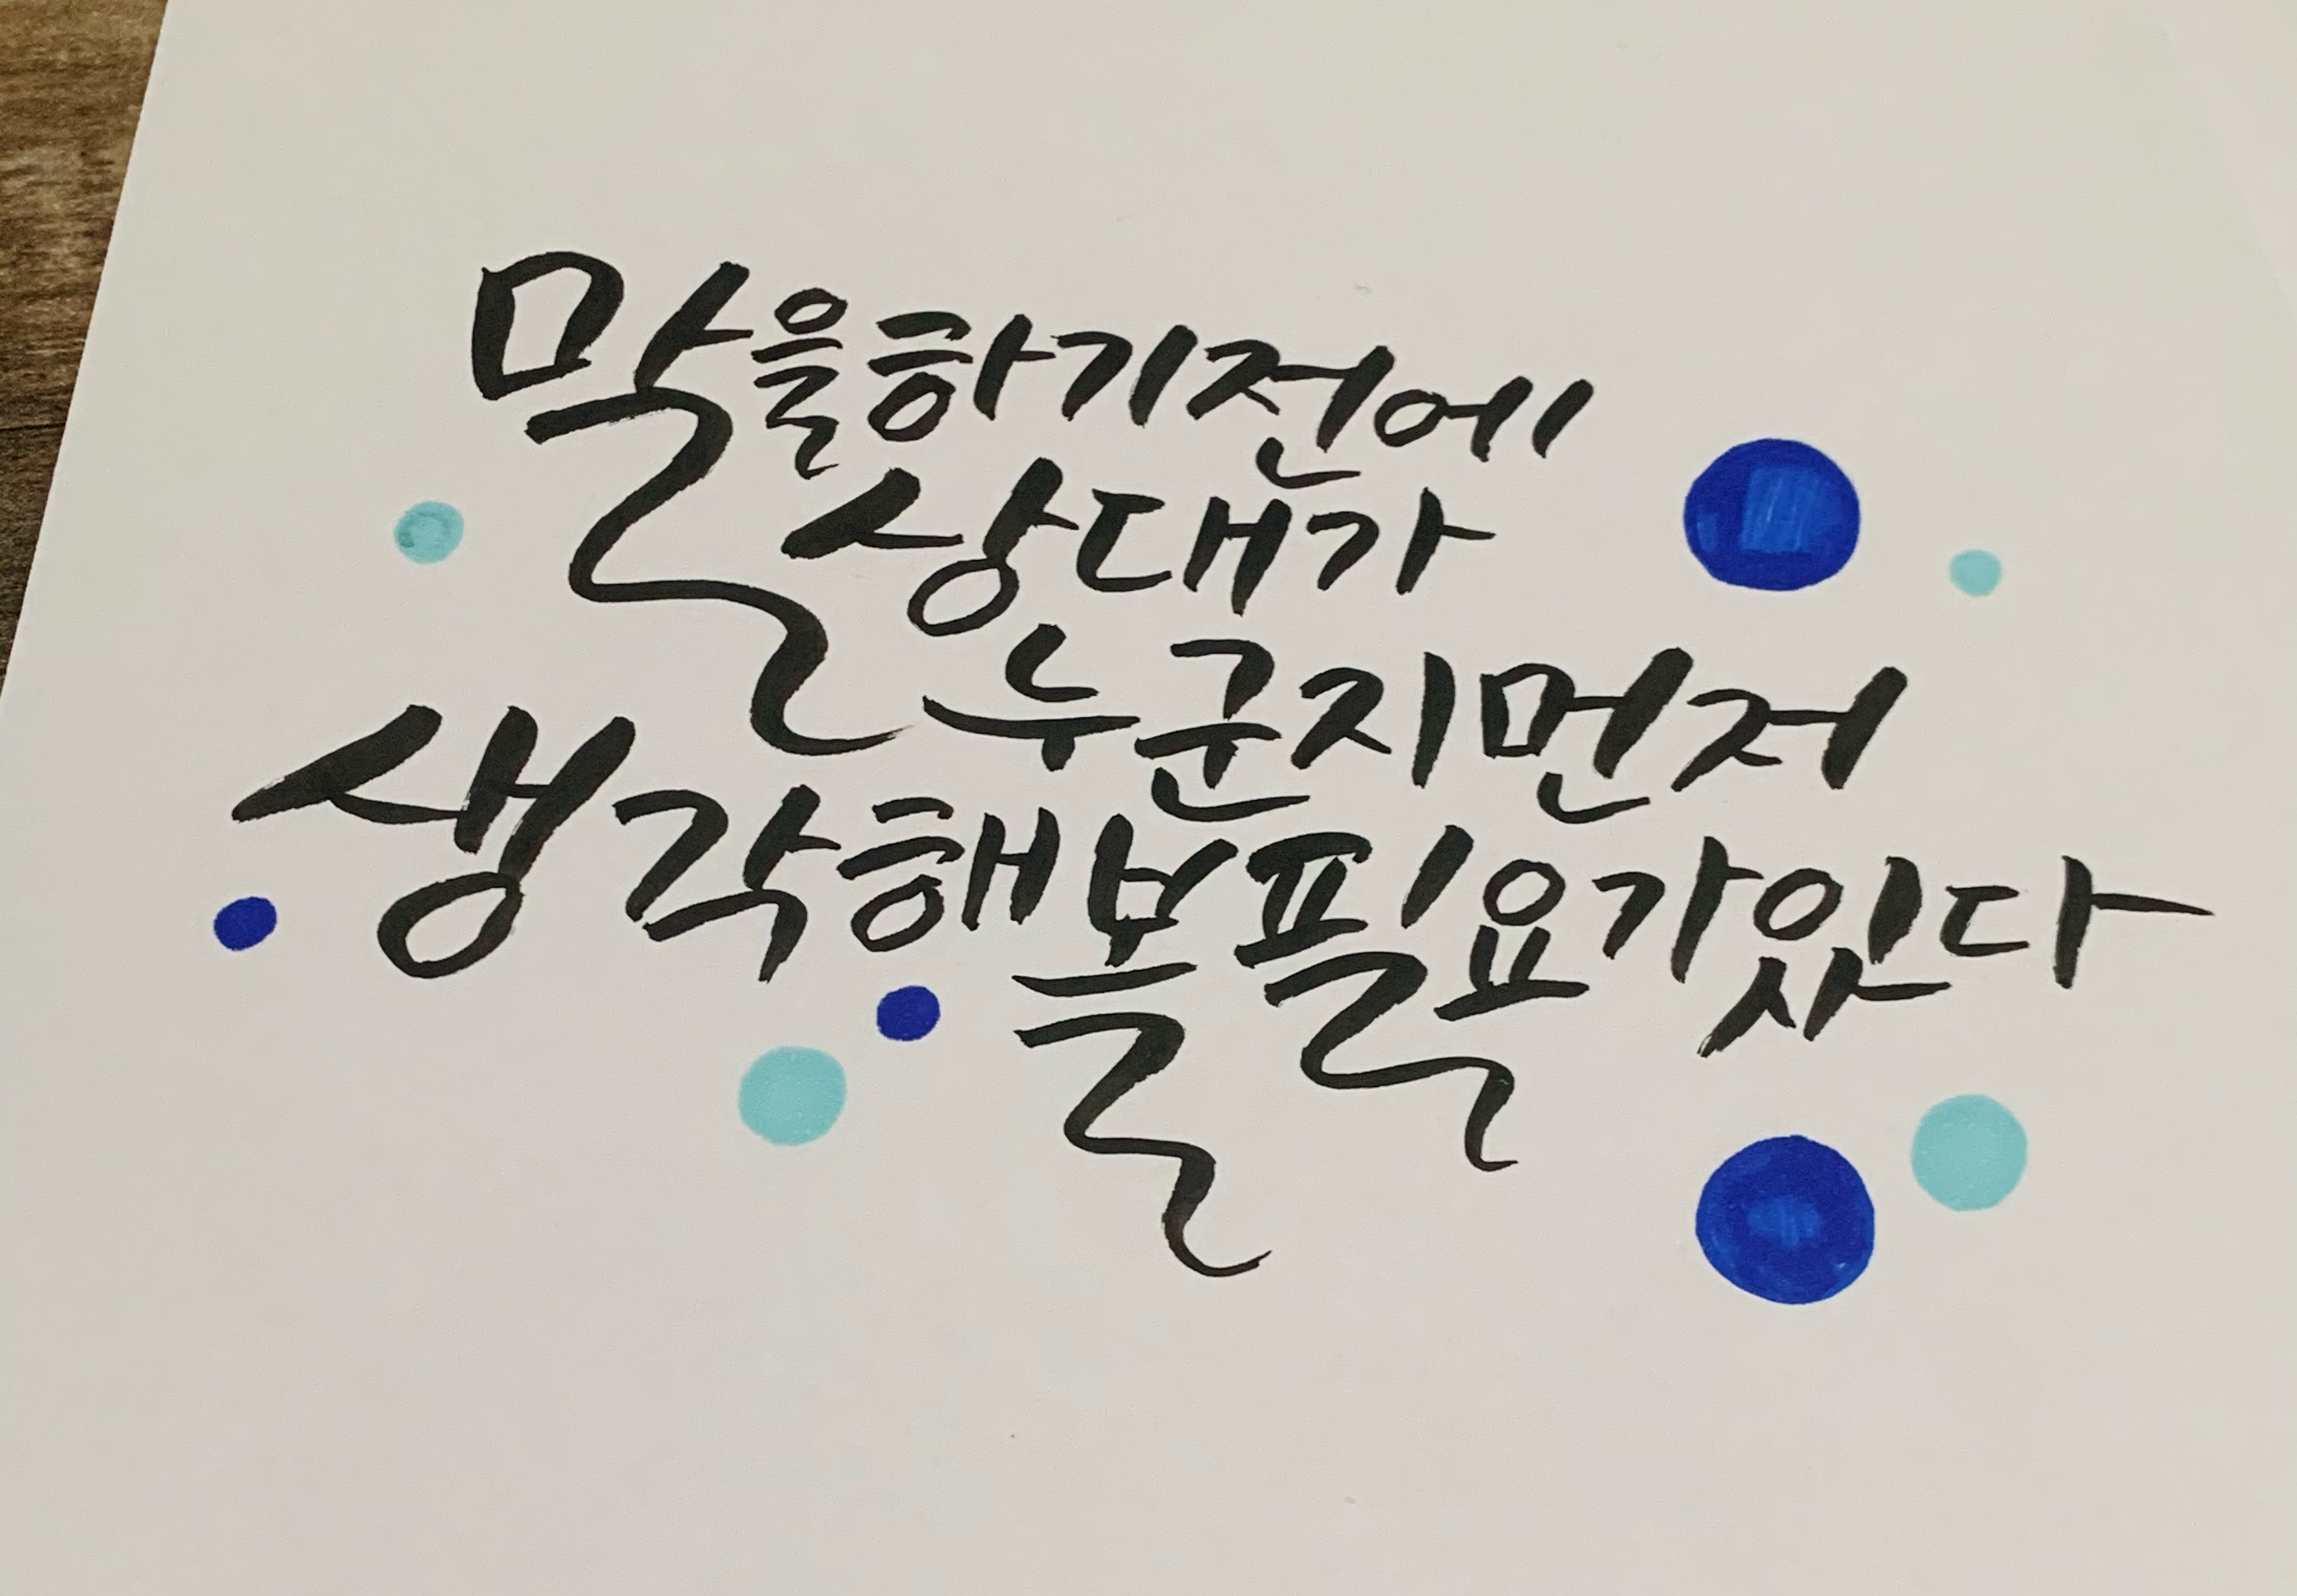 말을하기전에
상대가
누군지먼저
생각해볼필요가있다